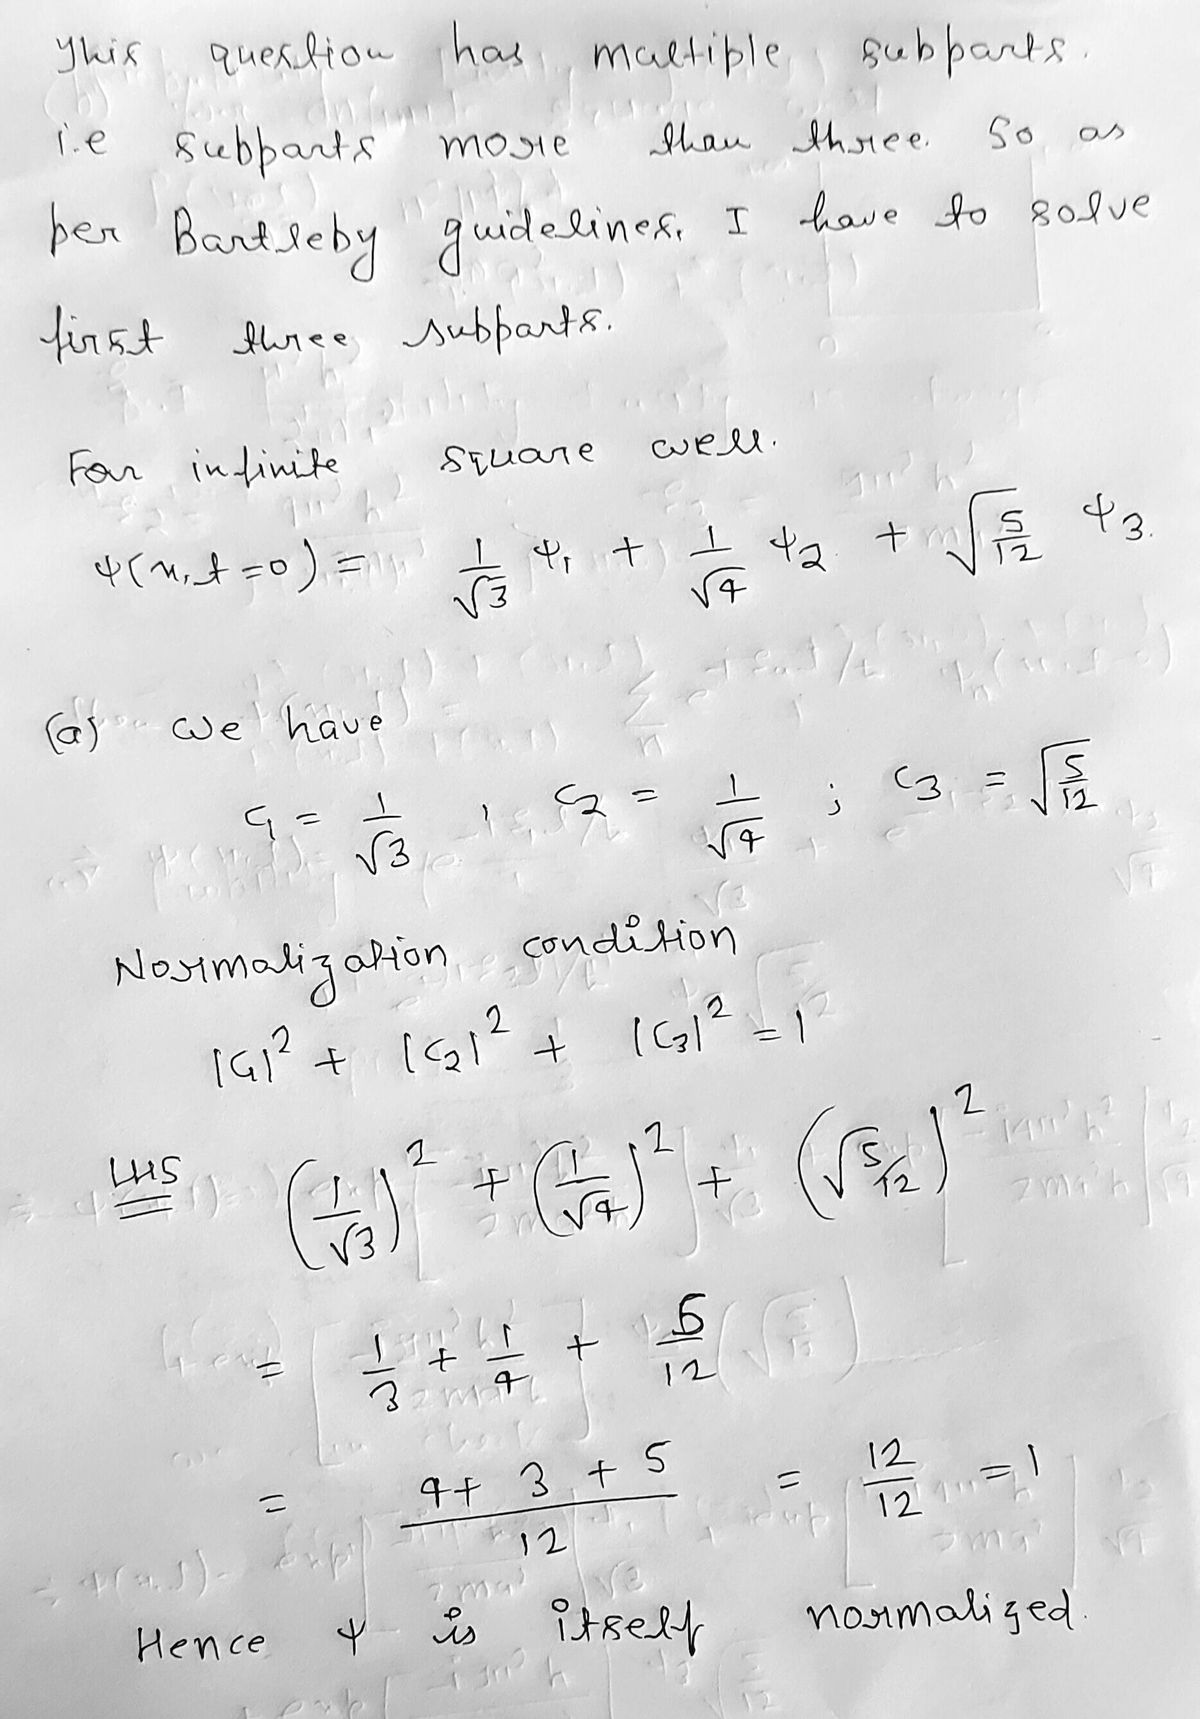 This question has multiple subparts.
i.e subparts more than three. So as
per Bartleby guidelines, I have to solve
first three subparts.
For infinite square well.
ψ(x,t=0) = 1/√3 ψ1 + 1/√4 ψ2 + √5/12 ψ3.
(a) we have
C1 = 1/√3 , C2 = 1/√4 ; C3 = √5/12
Normalization condition
|C1|² + |C2|² + |C3|² = 1
LHS (1/√3)² + (1/√4)² + (√5/12)²
= 1/3 + 1/4 + 5/12
= 4+3+5/12 = 12/12 = 1
Hence ψ is itself normalized.